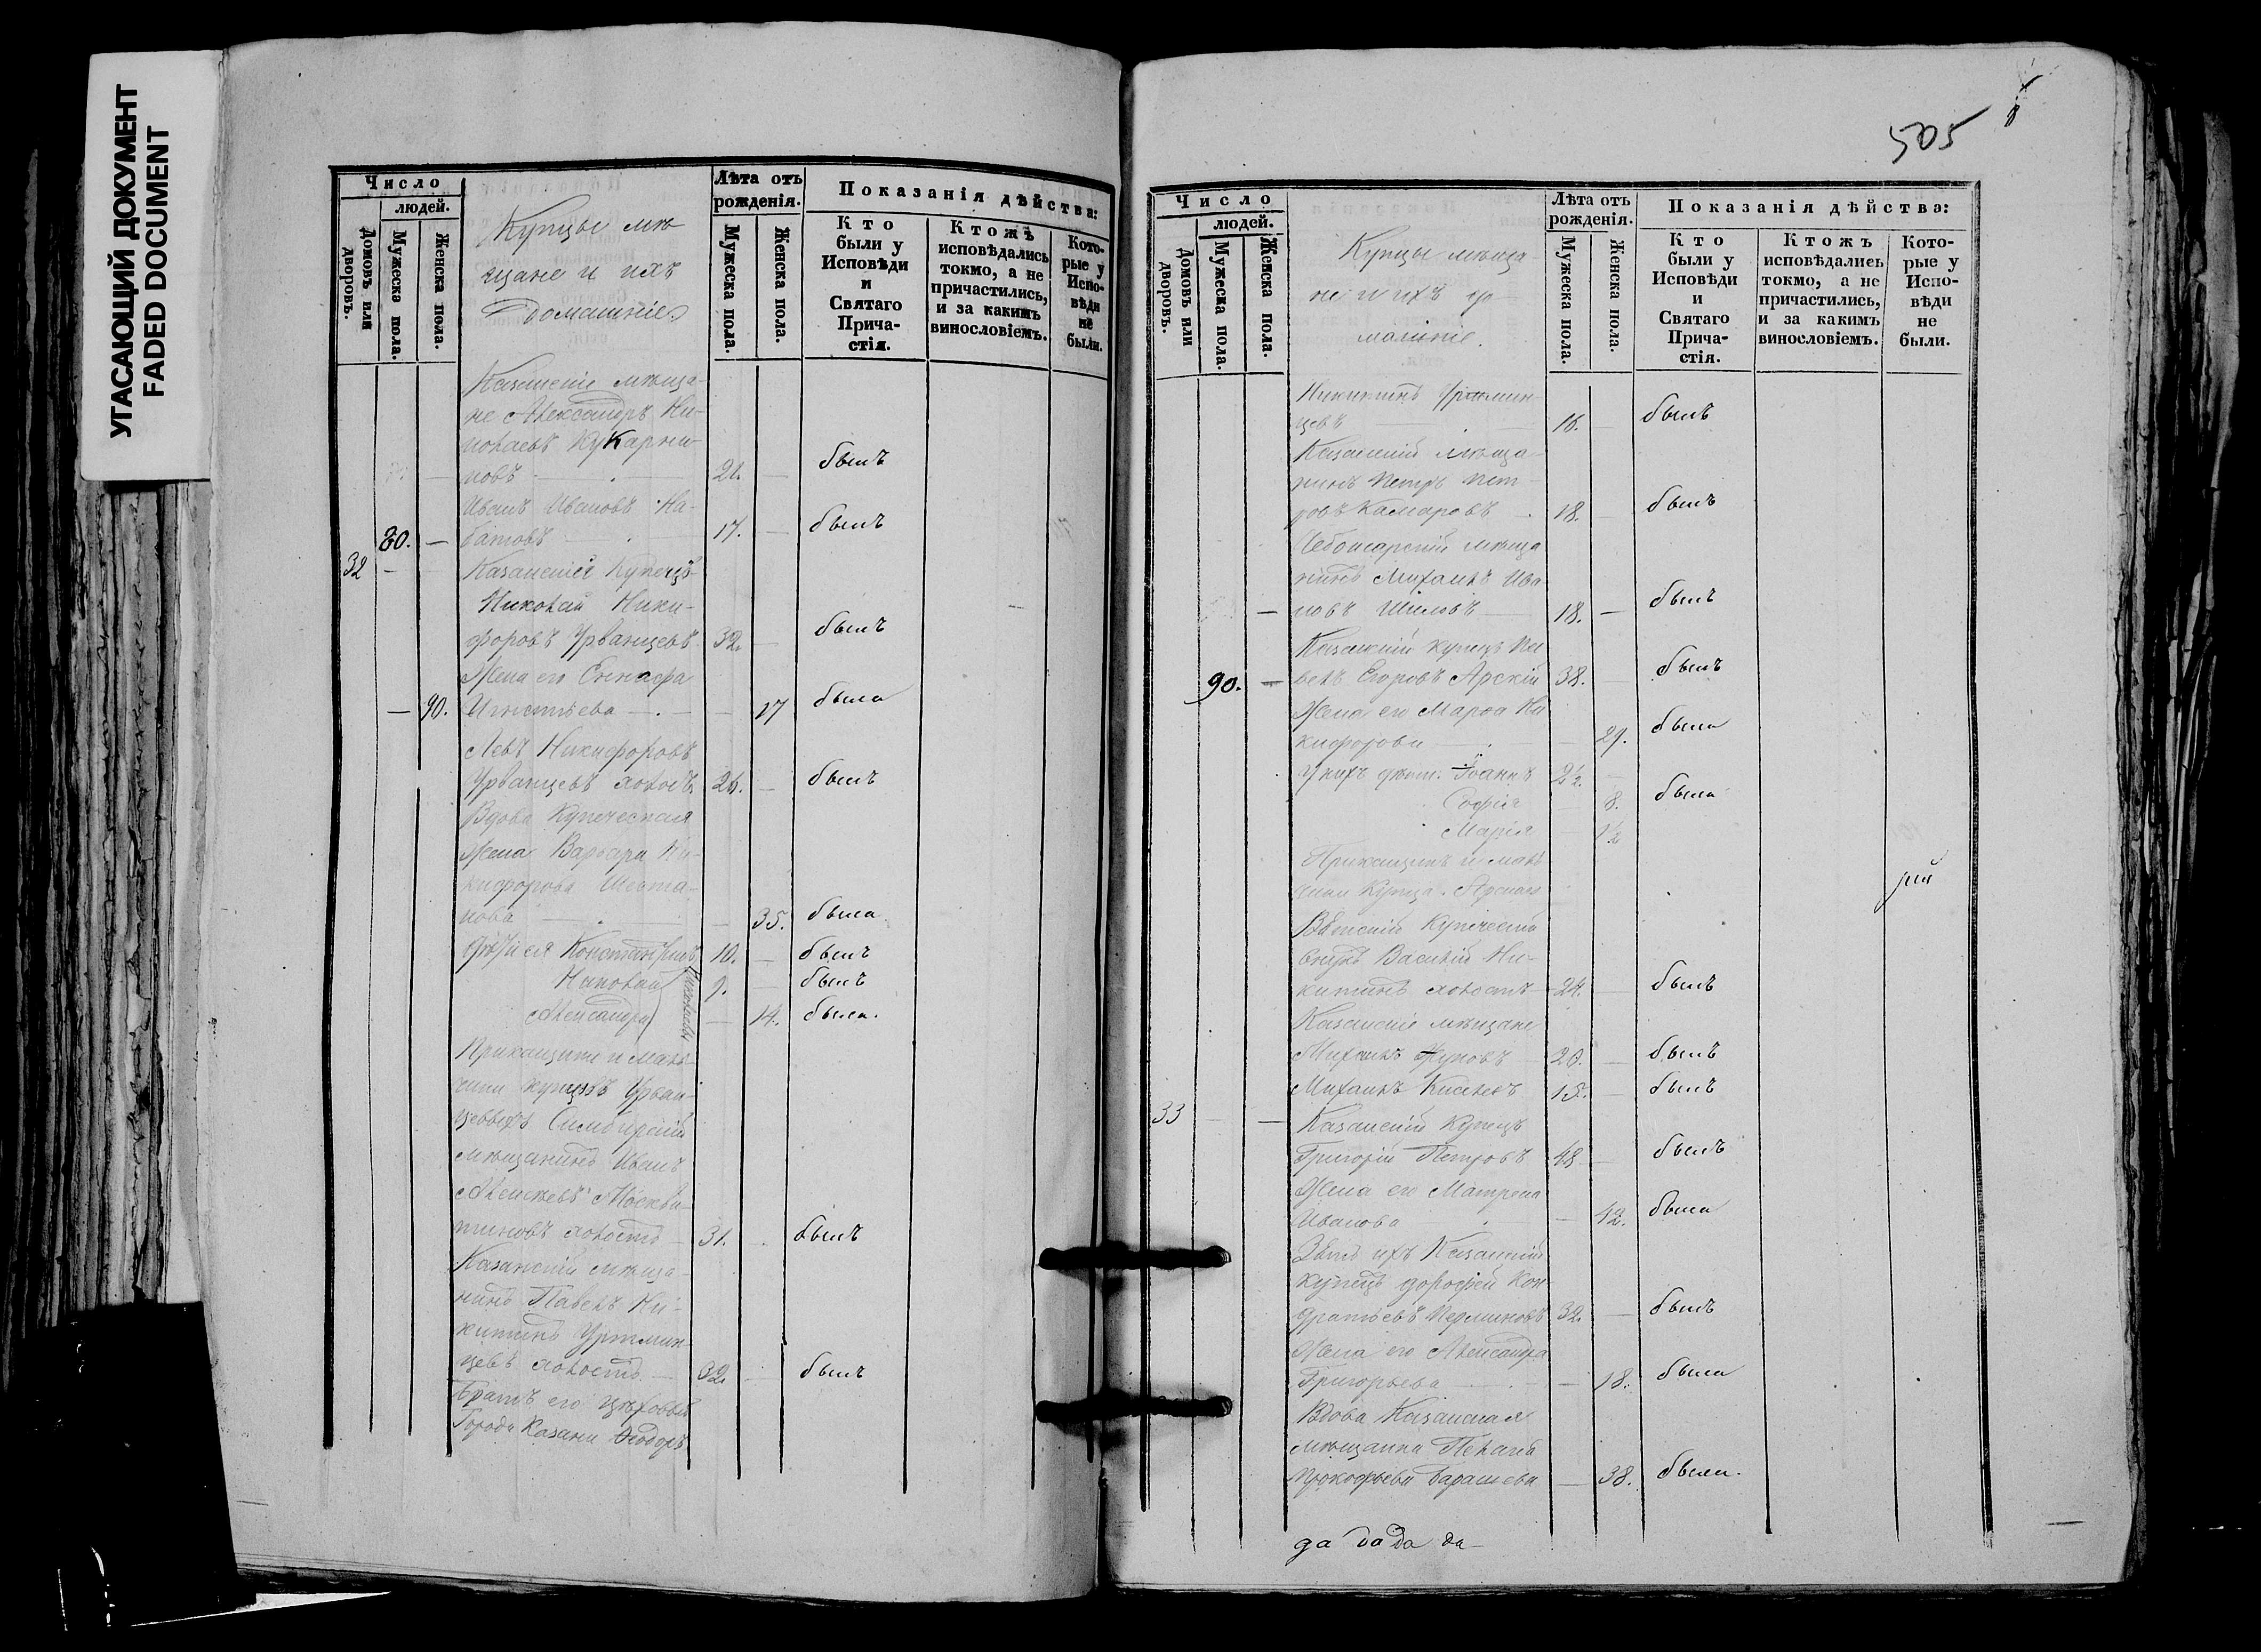 УГАСАЮЩИЙ ДОКУМЕНТ
FADED DOCUMENT
Число
людей.
Домовъ или дворовъ.
Мужеска пола.
Женска пола.
Купцы мѣ
щане и ихъ
домашніе
Лѣта отъ
рожденія.
Мужеска пола.
Женска пола.
Показанія дѣйства:
Кто
были у
Исповѣди
и
Святаго
Прича-
стія.
Ктожъ
исповѣдались
токмо, а не
причастились,
и за какимъ
винословіемъ.
Кото-
рые у
Испо-
вѣди
не
были.
Казанскіе мѣща-
не Александръ Ни-
колаевъ Кукарни-
ковъ 21. былъ
Иванъ Ивановъ На-
80. — батовъ 17. былъ
32 — Казанскій Купецъ
Николай Ники-
форовъ Урванцевъ 32. былъ
Жена его
— 90. Игнатьева — 17 была
Левъ Никифоровъ
Урванцевъ холостъ 26. былъ
Вдова Купеческая
Жена Варвара Ни-
кифорова
нова 35. была
дѣти ея Константинъ 10. — былъ
Николай 9. — былъ
Александра — 14. была.
Николаевы
Прикащики и маль
чики купцовъ Урван-
цовыхъ Симбирскій
мѣщанинъ Иванъ
Алексѣевъ Москви-
тиновъ холостъ 31. былъ
Казанскій мѣща-
нинъ Павелъ Ни-
китинъ Уртмин-
цевъ холостъ — 32. былъ
Братъ его цѣховый
Города Казани Ѳеодоръ
505
Число
людей.
Домовъ или дворовъ.
Мужеска пола.
Женска пола.
Купцы мѣща-
не и ихъ до-
машніе.
Лѣта отъ
рожденія.
Мужеска пола.
Женска пола.
Показанія дѣйства:
Кто
были у
Исповѣди
и
Святаго
Прича-
стія.
Ктожъ
исповѣдались
токмо, а не
причастились,
и за какимъ
винословіемъ.
Кото-
рые у
Испо-
вѣди
не
были.
Никитинъ Уртмин-
цевъ 16. — былъ
Казанскій мѣща-
нинъ Петръ Пет-
ровъ Камаровъ 18. — былъ
Чебоксарскій мѣща
нинъ Михаилъ Ива
— новъ Шиловъ 18. — былъ
Казанскій купецъ Па
90. — велъ Егоровъ Арскій 38. былъ
Жена его Марфа Ни
кифорова — 29. была
У нихъ дѣти: Іоаннъ 2½ —
Софія — 8. была
Марія — 1½
Прикащикъ и маль
чики Купца Арскаго
Вятскій купеческій
внукъ Василій Ни-
китинъ холостъ — 24. — былъ
Казанскіе мѣщане
Михаилъ 20. — былъ
Михаилъ Киселевъ 15. — былъ
33 — Казанскій Купецъ
Григорій Петровъ 48 — былъ
Жена его Матрена
Иванова — 42. была
Зять ихъ Казанскій
купецъ Дорофей Кон-
дратьевъ 32. — былъ
Жена его Александра
Григорьева — 18. была
Вдова Казанская
мѣщанка Пелагея
Прокофьева Барашева — 38. была.
да да да да